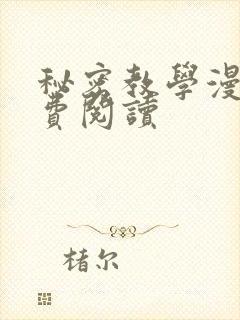 秘密教學漫
費閱讀
楮尔